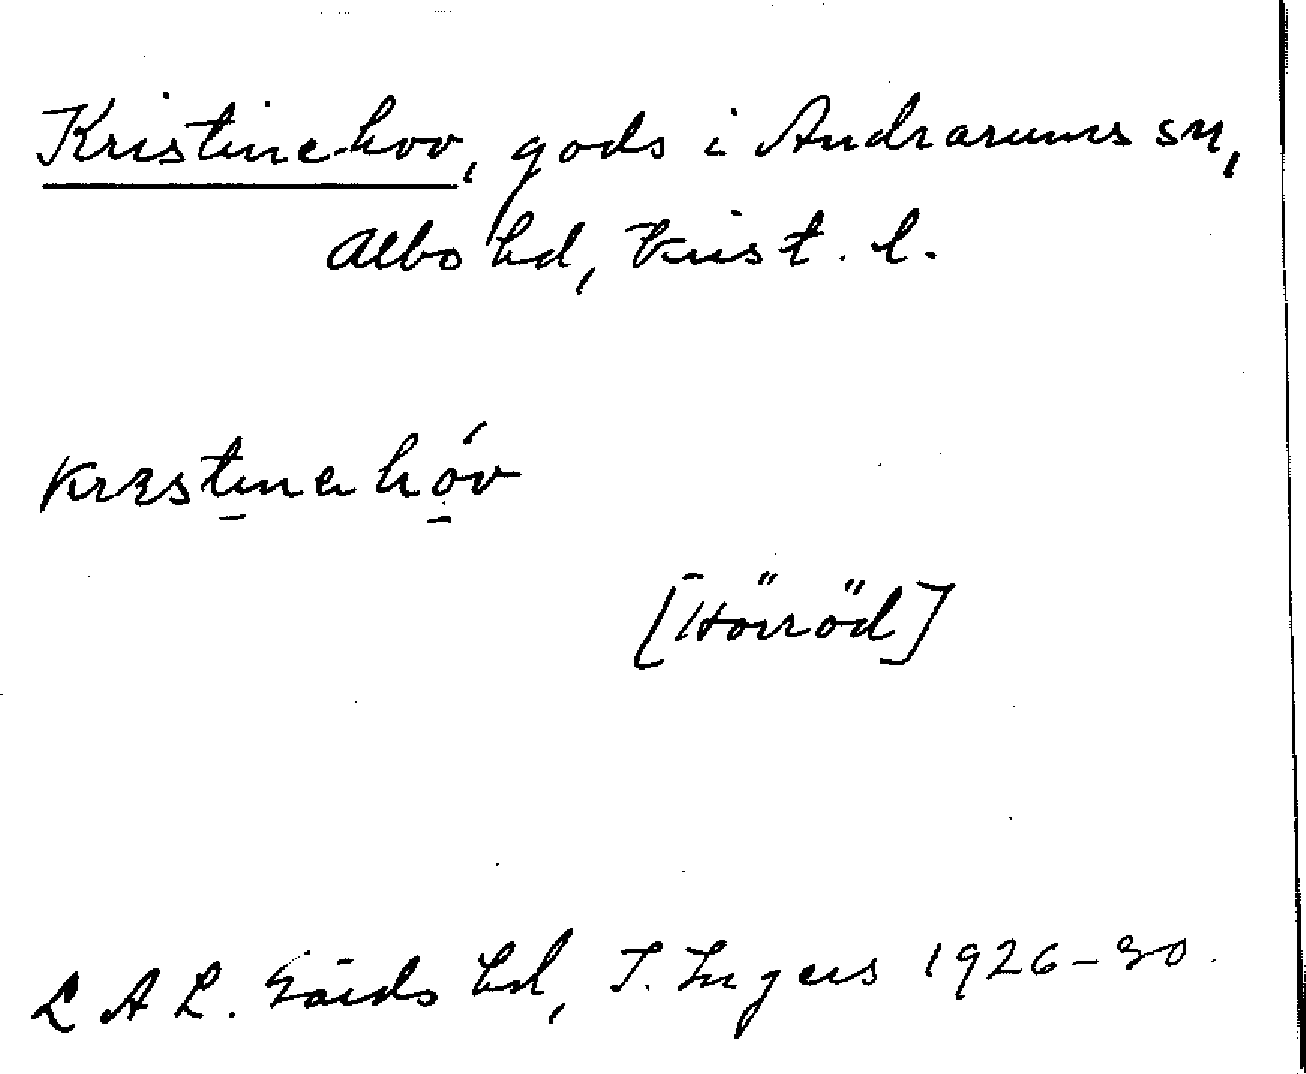 Kristinehov, gods i Andrarums sn,
Albo hd, Krist. l.
[Hörröd]
L A L. Gärds hd, I. Ingers 1926-30.